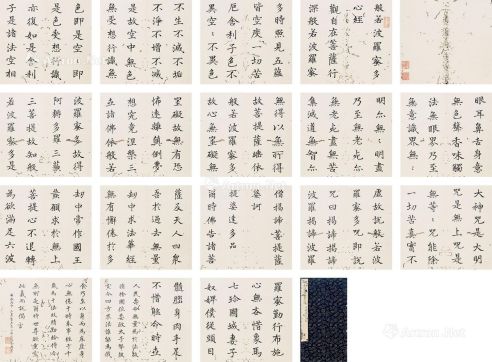 般若波羅密多
心經
觀自在菩薩行
深般若波羅密
多時照見五蘊
皆空度一切苦
厄舍利子色不
異空空不異色
是色受想行識
亦復如是舍利
子是諸法空相
不生不滅不垢
不淨不增不減
是故空中無色
無受想行識無
眼耳鼻舌身意
無色聲香味觸
法無眼界乃至
無意識界無無
明亦無無明盡
乃至無老死亦
無老死盡無苦
集滅道無智亦
無得以無所得
故菩提薩埵依
般若波羅密多
故心無罣礙無
罣礙故無有恐
怖遠離顛倒夢
想究竟涅槃三
世諸佛依般若
波羅密多故得
阿耨多羅三藐
三菩提故知般
若波羅密多是
大神咒是大明
咒是無上咒是
無等等咒能除
一切苦真實不
虛故說般若波
羅密多咒即說
咒曰揭諦揭諦
波羅揭諦波羅
僧揭諦菩提薩
婆訶
提婆達多品
爾時佛告諸菩
薩及天人四衆
吾於過去無量
劫中求法華經
無有懈倦於多
劫中常作國王
發願求於無上
菩提心不退轉
為欲滿足六波
羅密勤行布施
心無吝惜象馬
七珍國城妻子
奴婢僕從頭目
髓腦身肉手足
不惜軀命時世
人民壽命無量為於法故
捐捨國位委政太子擊鼓